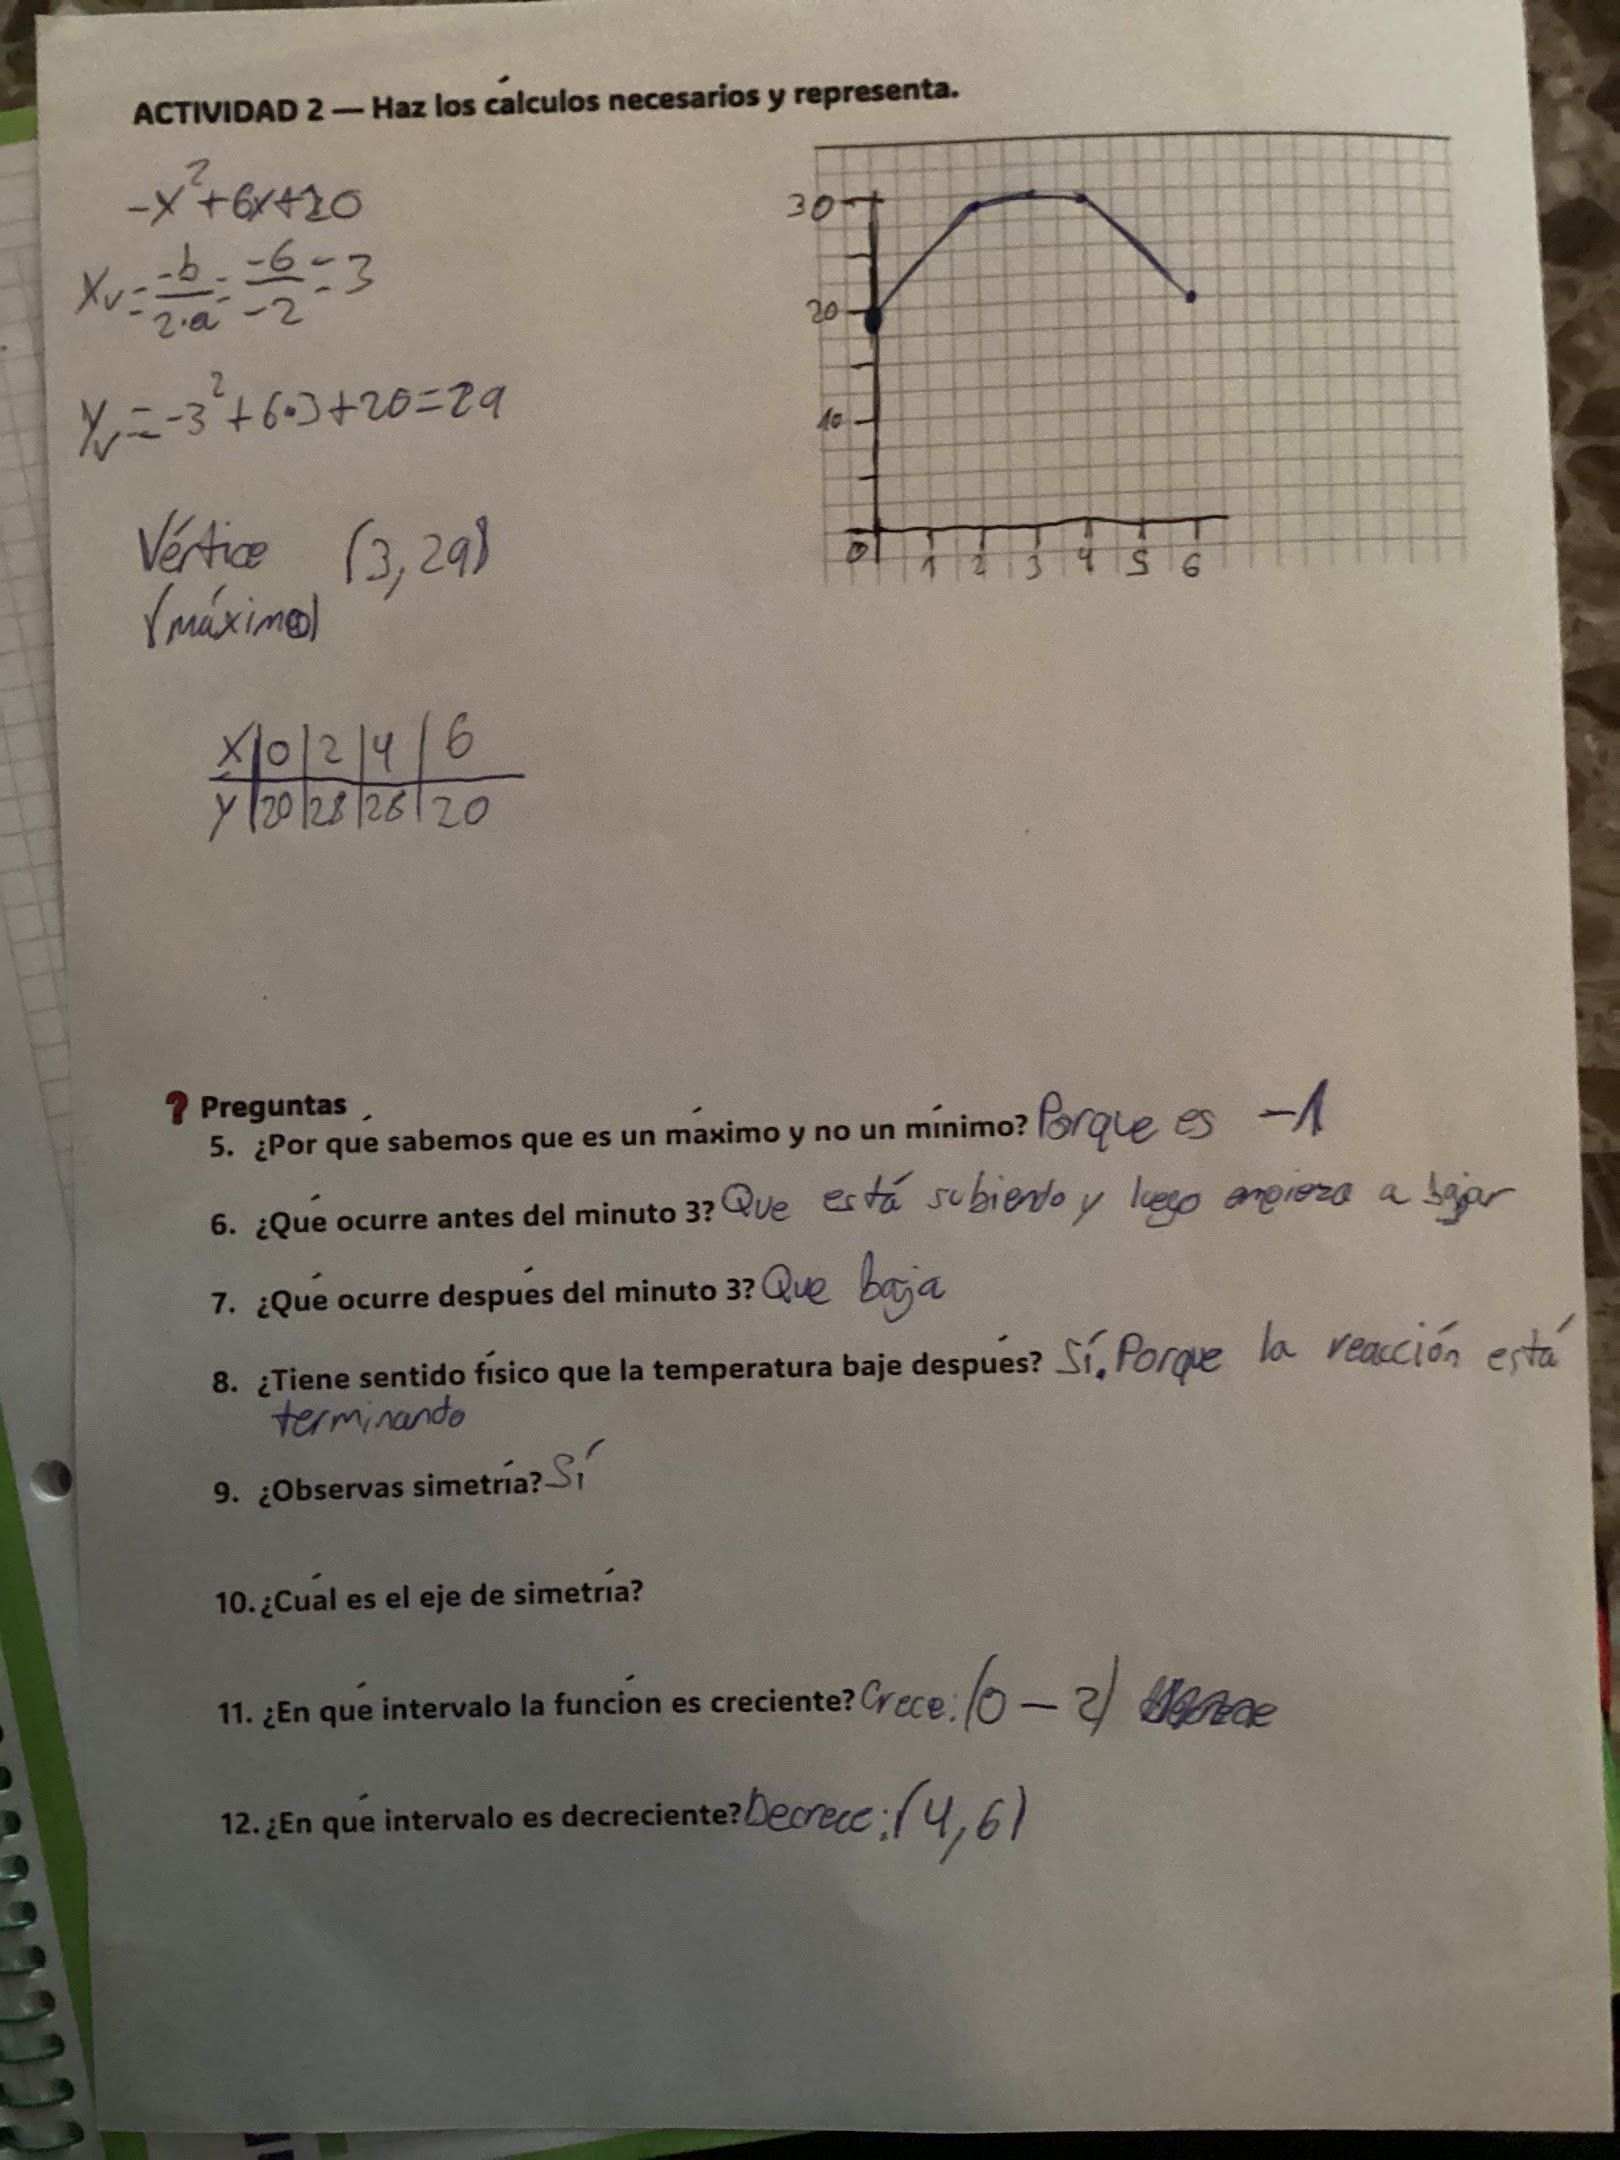 ACTIVIDAD 2 — Haz los cálculos necesarios y representa.
-x²+6x+20
Xv = -b/2·a = -6/-2 = 3
Yv = -3²+6·3+20=29
Vértice (3,29)
(máximo)
X|0|2|4|6
Y|20|28|28|20
30
20
10
0 1 2 3 4 5 6
? Preguntas
5. ¿Por qué sabemos que es un máximo y no un mínimo? Porque es -1
6. ¿Qué ocurre antes del minuto 3? Que está subiendo y luego empieza a bajar
7. ¿Qué ocurre después del minuto 3? Que baja
8. ¿Tiene sentido físico que la temperatura baje después? Sí. Porque la reacción está
terminando
9. ¿Observas simetría? Sí
10. ¿Cuál es el eje de simetría?
11. ¿En qué intervalo la función es creciente? Crece: (0 – 2)
12. ¿En qué intervalo es decreciente? Decrece: (4,6)